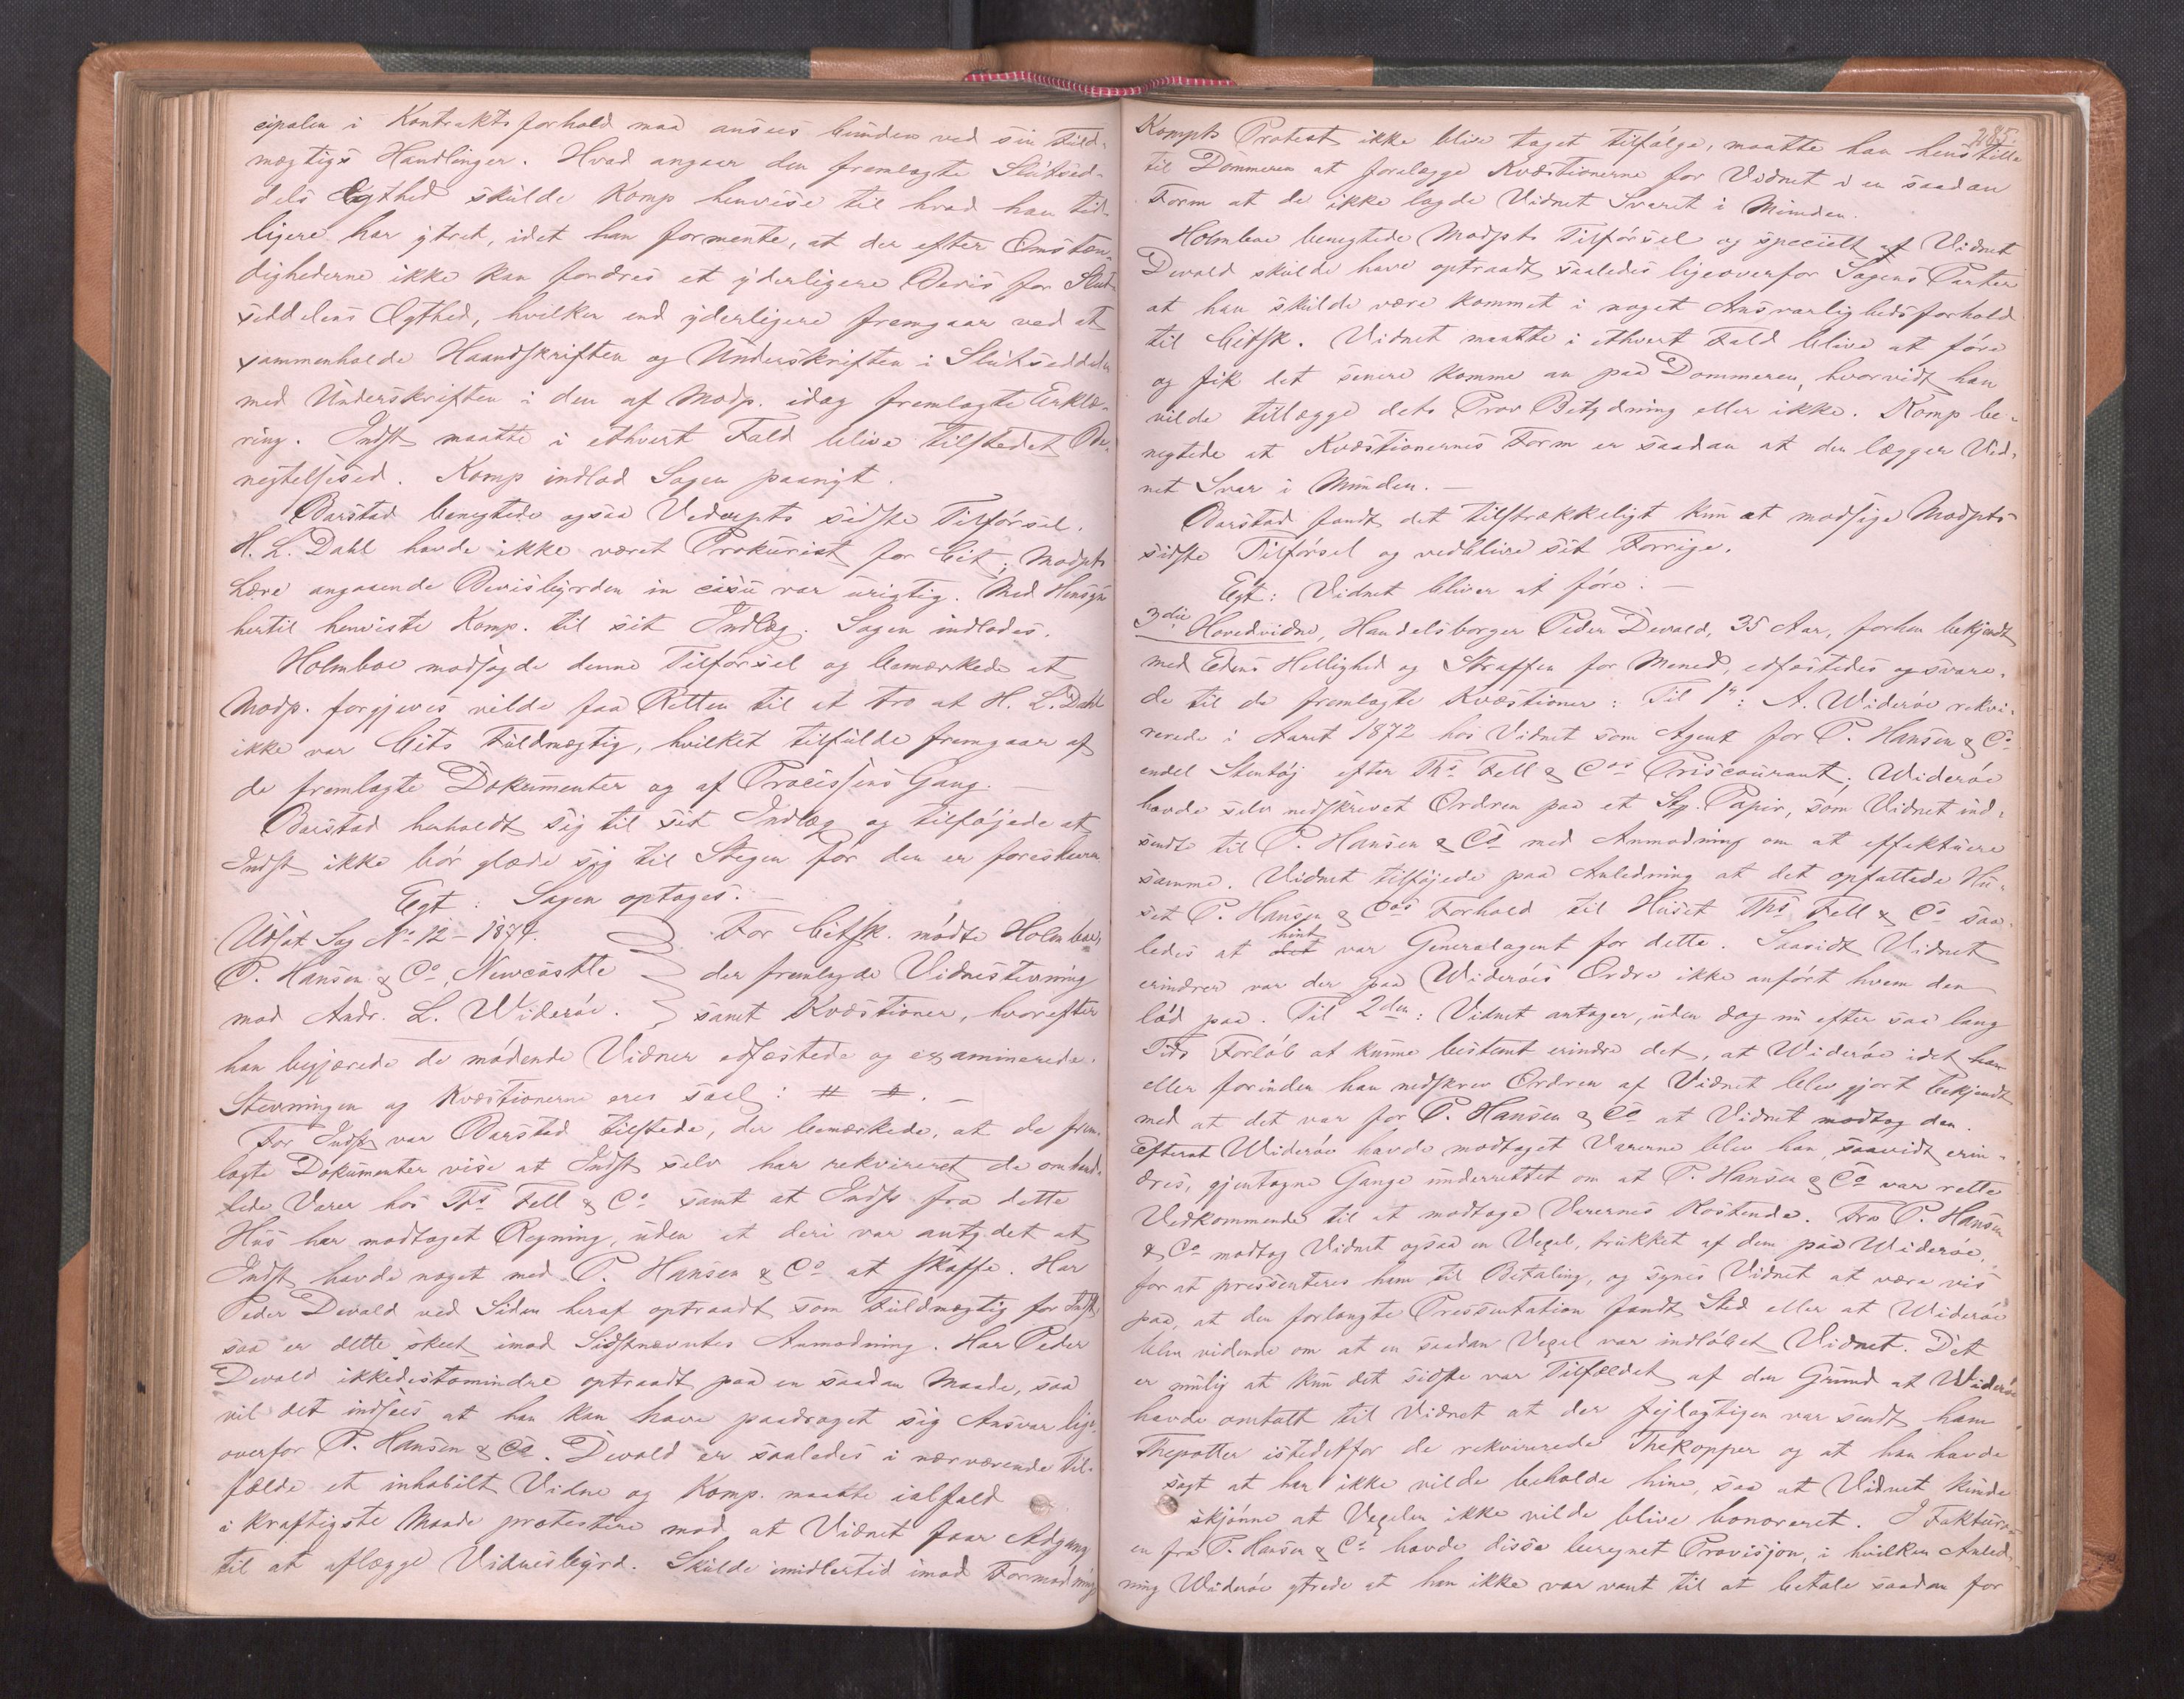 cipalen i Kontraktsforhold maa ansees bunden ved sin Fuld-
mægtigs Handlinger. Hvad angaar den fremlagte Slutsed-
dels Ægthed skulde Komp henvise til hvad han tid-
ligere har ytret, idet han formente, at der efter Omstæn-
dighederne ikke kan fordres et yderligere Bevis for Slut-
seddelens Ægthed, hvilken end yderligere fremgaar ved at
sammenholde Haandskriften og Underskriften i Slutseddelen
med Underskriften i den af Modp. idag fremlagte Erklæ-
ring. Indst maatte i ethvert Fald blive tilstedet Be-
negtelsesed. Komp indlod Sagen paanyt.
Barstad benegtede ogsaa Vederpts sidste Tilførsel.
H. L. Dahl havde ikke været Prokurist for Cit; Modpts
Lære angaaende Bevisbyrden in casu var urigtig. Med Hensyn
hertil henviste Komp. til sit Indlæg. Sagen indlodes.
Holmboe modsagde denne Tilførsel og bemærkede at
Modp. forgjeves vilde faa Retten til at tro at H. L. Dahl
ikke var Cits Fuldmægtig, hvilket tilfulde fremgaar af
de fremlagte Dokumenter og af Processens Gang. —
Barstad henholdt sig til sit Indlæg og tilføjede at
Indst ikke bør glæde sig til Stegen før den er foreskaaren
Egt: Sagen optages. —
Udsat Sag No 12 - 1874. For Citsk. mødte Holmboe,
P. Hansen & Co, Newcastle der fremlagde Vidnestevning
mod Andr. L. Widerøe. samt Kvæstioner, hvorefter
han begjærede de mødende Vidner edfæstede og examinerede.
Stevningen og Kvæstionerne eres saal: # #. —
For Indst var Barstad tilstede, der bemærkede, at de frem-
lagte Dokumenter vise at Indst selv har rekvireret de omhand-
lede Varer hos Ths Fell & Co samt at Indst fra dette
Hus har modtaget Regning, uden at deri var antydet at
Indst havde noget med P. Hansen & Co at skaffe. Har
Peder Devold ved Siden heraf optraadt som Fuldmægtig for Indst,
saa er dette skeet imod Sidstnævntes Anmodning. Har Peder
Devold ikkedestomindre optraadt paa en saadan Maade, saa
vil det indsees at han kan have paadraget sig Ansvar lige-
overfor P. Hansen & Co. Devold er saaledes i nærværende Til-
fælde et inhabilt Vidne og Komp. maatte ialfald
i kraftigste Maade protestere mod at Vidnet faar Adgang
til at aflægge Vidnesbyrd. Skulde imidlertid imod Formodning
285.
Kompts Protest ikke blive taget tilfølge, maatte han henstille
til Dommeren at forelægge Kvæstionerne for Vidnet i en saadan
Form at de ikke lagde Vidnet Svaret i Munden.
Holmboe benegtede Modpts Tilførsel og specielt at Vidnet
Devold skulde have optraadt saaledes ligeoverfor Sagens Parter
at han skulde være kommet i noget Ansvarlighedsforhold
til Citsk. Vidnet maatte i ethvert Fald blive at føre
og fik det senere komme an paa Dommeren, hvorvidt han
vilde tillægge dets Prov Betydning eller ikke. Komp be-
negtede at Kvæstionernes Form er saadan at den lægger Vid-
net Svar i Munden. —
Barstad fandt det tilstrækkeligt kun at modsige Modpts
sidste Tilførsel og vedblive sit Forrige.
Egt: Vidnet bliver at føre. —
3die Hovedvidne, Handelsborger Peder Devold, 35 Aar, forhen bekjendt
med Edens Hellighed og Straffen for Mened, edfæstedes og svare-
de til de fremlagte Kvæstioner: Til 1ste: A. Widerøe rekvi-
rerede i Aaret 1872 hos Vidnet som Agent for P. Hansen & Co
endel Stentøj efter Ths Fell & Cos Priscourant; Widerøe
havde selv nedskrevet Ordren paa et Stk. Papir, som Vidnet ind-
sendte til P. Hansen & Co med Anmodning om at effektuere
samme. Vidnet tilføjede paa Anledning at det opfattede Hu-
set P. Hansen & Cos Forhold til Huset Ths Fell & Co saa-
ledes at hint var Generalagent for dette. Saavidt Vidnet
erindrer var der paa Widerøes Ordre ikke anført hvem den
lød paa. Til 2den: Vidnet antager, uden dog nu efter saa lang
Tids Forløb at kunne bestemt erindre det, at Widerøe idet han
eller forinden han nedskrev Ordren af Vidnet blev gjort bekjendt
med at det var for P. Hansen & Co at Vidnet modtog den.
Efterat Widerøe havde modtaget Varerne blev han, saavidt erin-
dres, gjentagne Gange underrettet om at P. Hansen & Co var rette
Vedkommende til at modtage Varernes Kostende. Fra P. Hansen
& Co modtog Vidnet ogsaa en Vexel, trukket af dem paa Widerøe,
for at presenteres ham til Betaling, og synes Vidnet at være vis
paa, at den forlangte Presentation fandt Sted eller at Widerøe
blev vidende om at en saadan Vexel var indløbet Vidnet. Det
er mulig at kun det sidste var Tilfældet af den Grund at Widerøe
havde omtalt til Vidnet at der fejlagtigen var sendt ham
Thepotter istedetfor de rekvirerede Thekopper og at han havde
sagt at han ikke vilde beholde hine, saa at Vidnet kunde
skjønne at Vexelen ikke vilde blive honoreret. I Faktura-
en fra P. Hansen & Co havde disse beregnet Provisjon, i hvilken Anled-
ning Widerøe ytrede at han ikke var vant til at betale saadan for